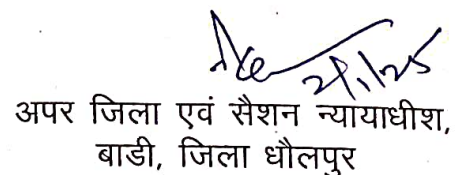 2/1/25
अपर जिला एवं सैशन न्यायाधीश,
बाडी, जिला धौलपुर